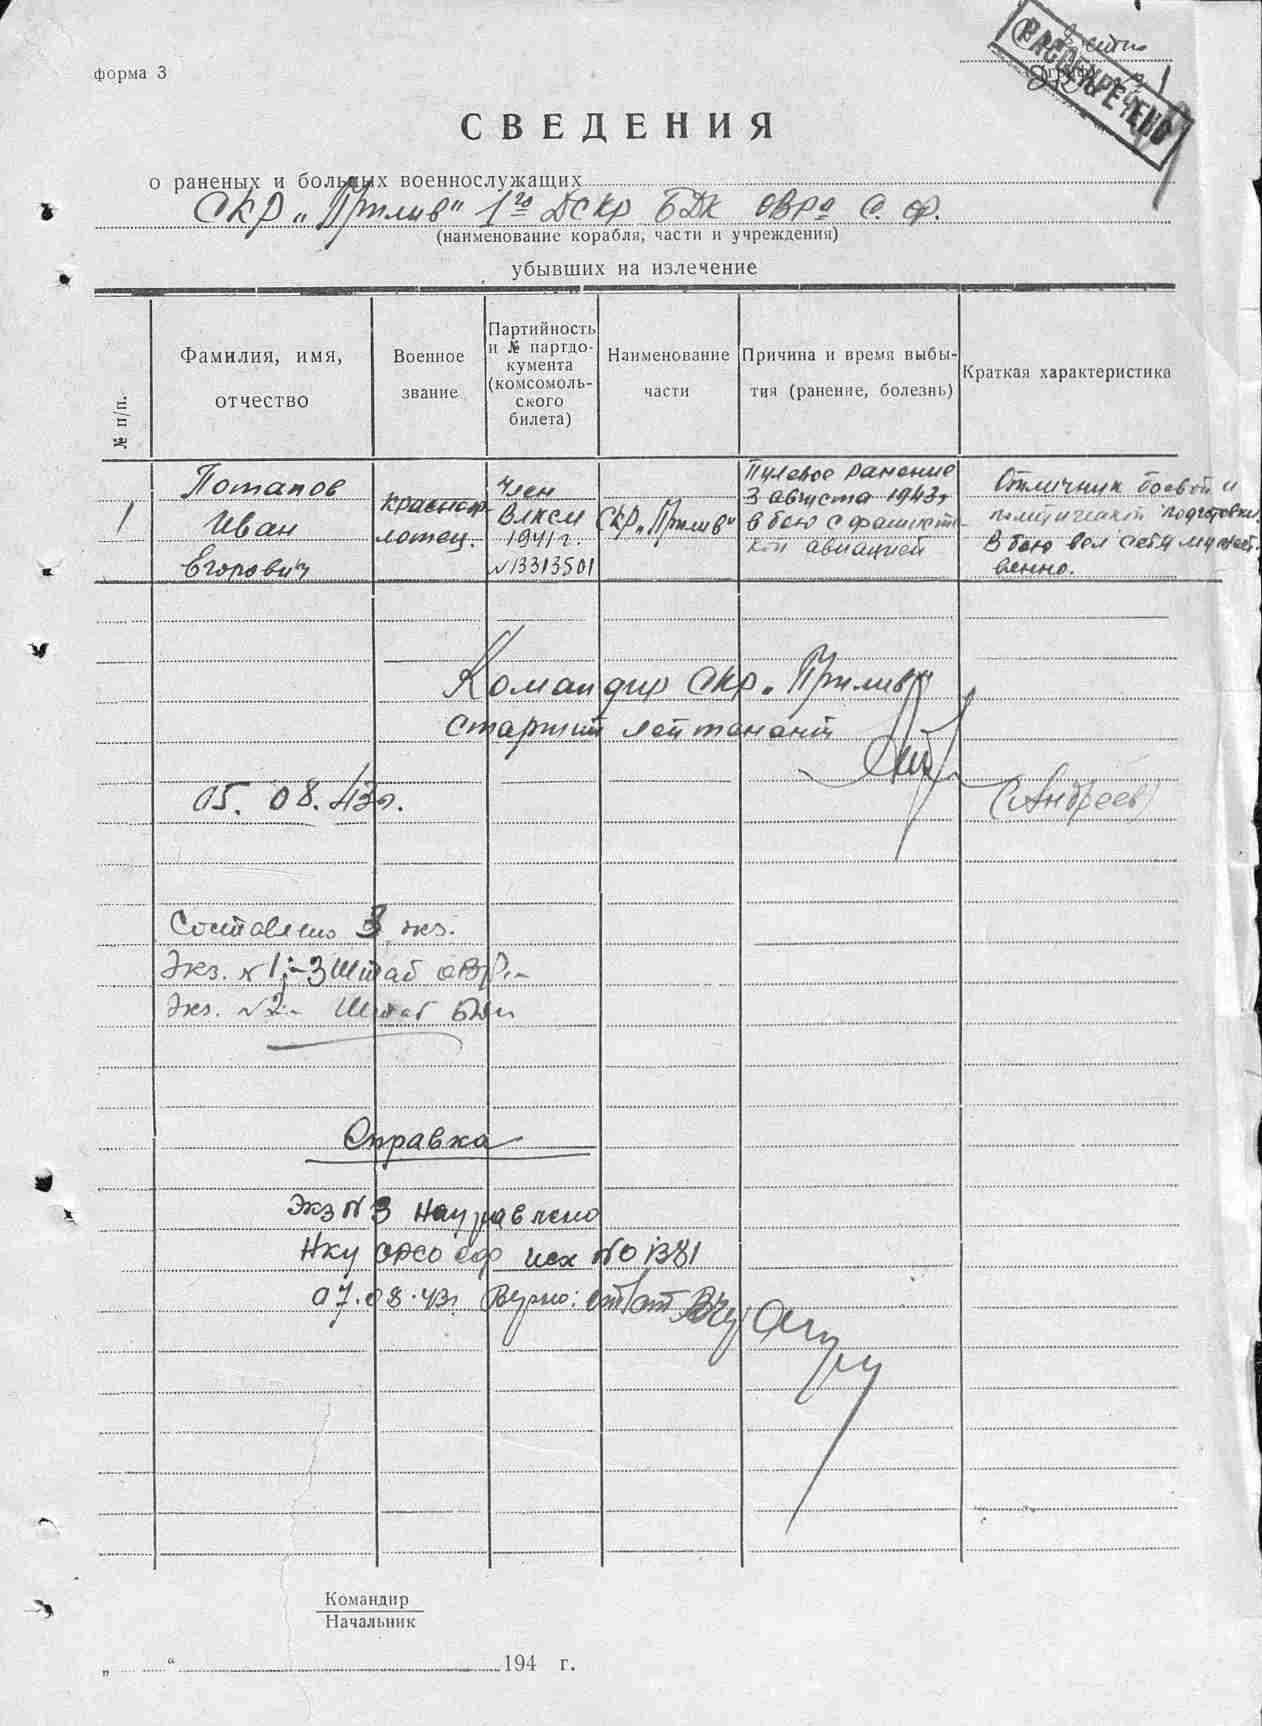 форма 3
РАССЕКРЕЧЕНО
СВЕДЕНИЯ
о раненых и больных военнослужащих
СКР „Прилив" 1го Дскр БДК ОВРа С.Ф.
(наименование корабля, части и учреждения)
убывших на излечение
№ п/п.
Фамилия, имя,
отчество
Военное
звание
Партийность
и № партдо-
кумента
(комсомоль-
ского
билета)
Наименование
части
Причина и время выбы-
тия (ранение, болезнь)
Краткая характеристика
1
Потапов
Иван
Егорович
красноф-
лотец.
Член
ВЛКСМ
1941 г.
№13313501
СКР „Прилив"
Пулевое ранение
3 августа 1943 г
в бою с фашистс-
кой авиацией
Отличник боевой и
политической подготовки.
В бою вел себя мужест-
венно.
Командир СКР „Прилив"
старший лейтенант
(Андреев)
05. 08. 43 г.
Составлено 3 экз.
Экз. №1,-3 Штаб ОВР.-
Экз. №2.- Штаб БДК
Справка
Экз №3 Направлено
исх №01381
07.08.43г. Верно:
Командир
Начальник
„ “ 194 г.